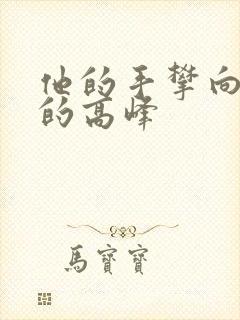 他的手攀向
的高峰
馬寶寶